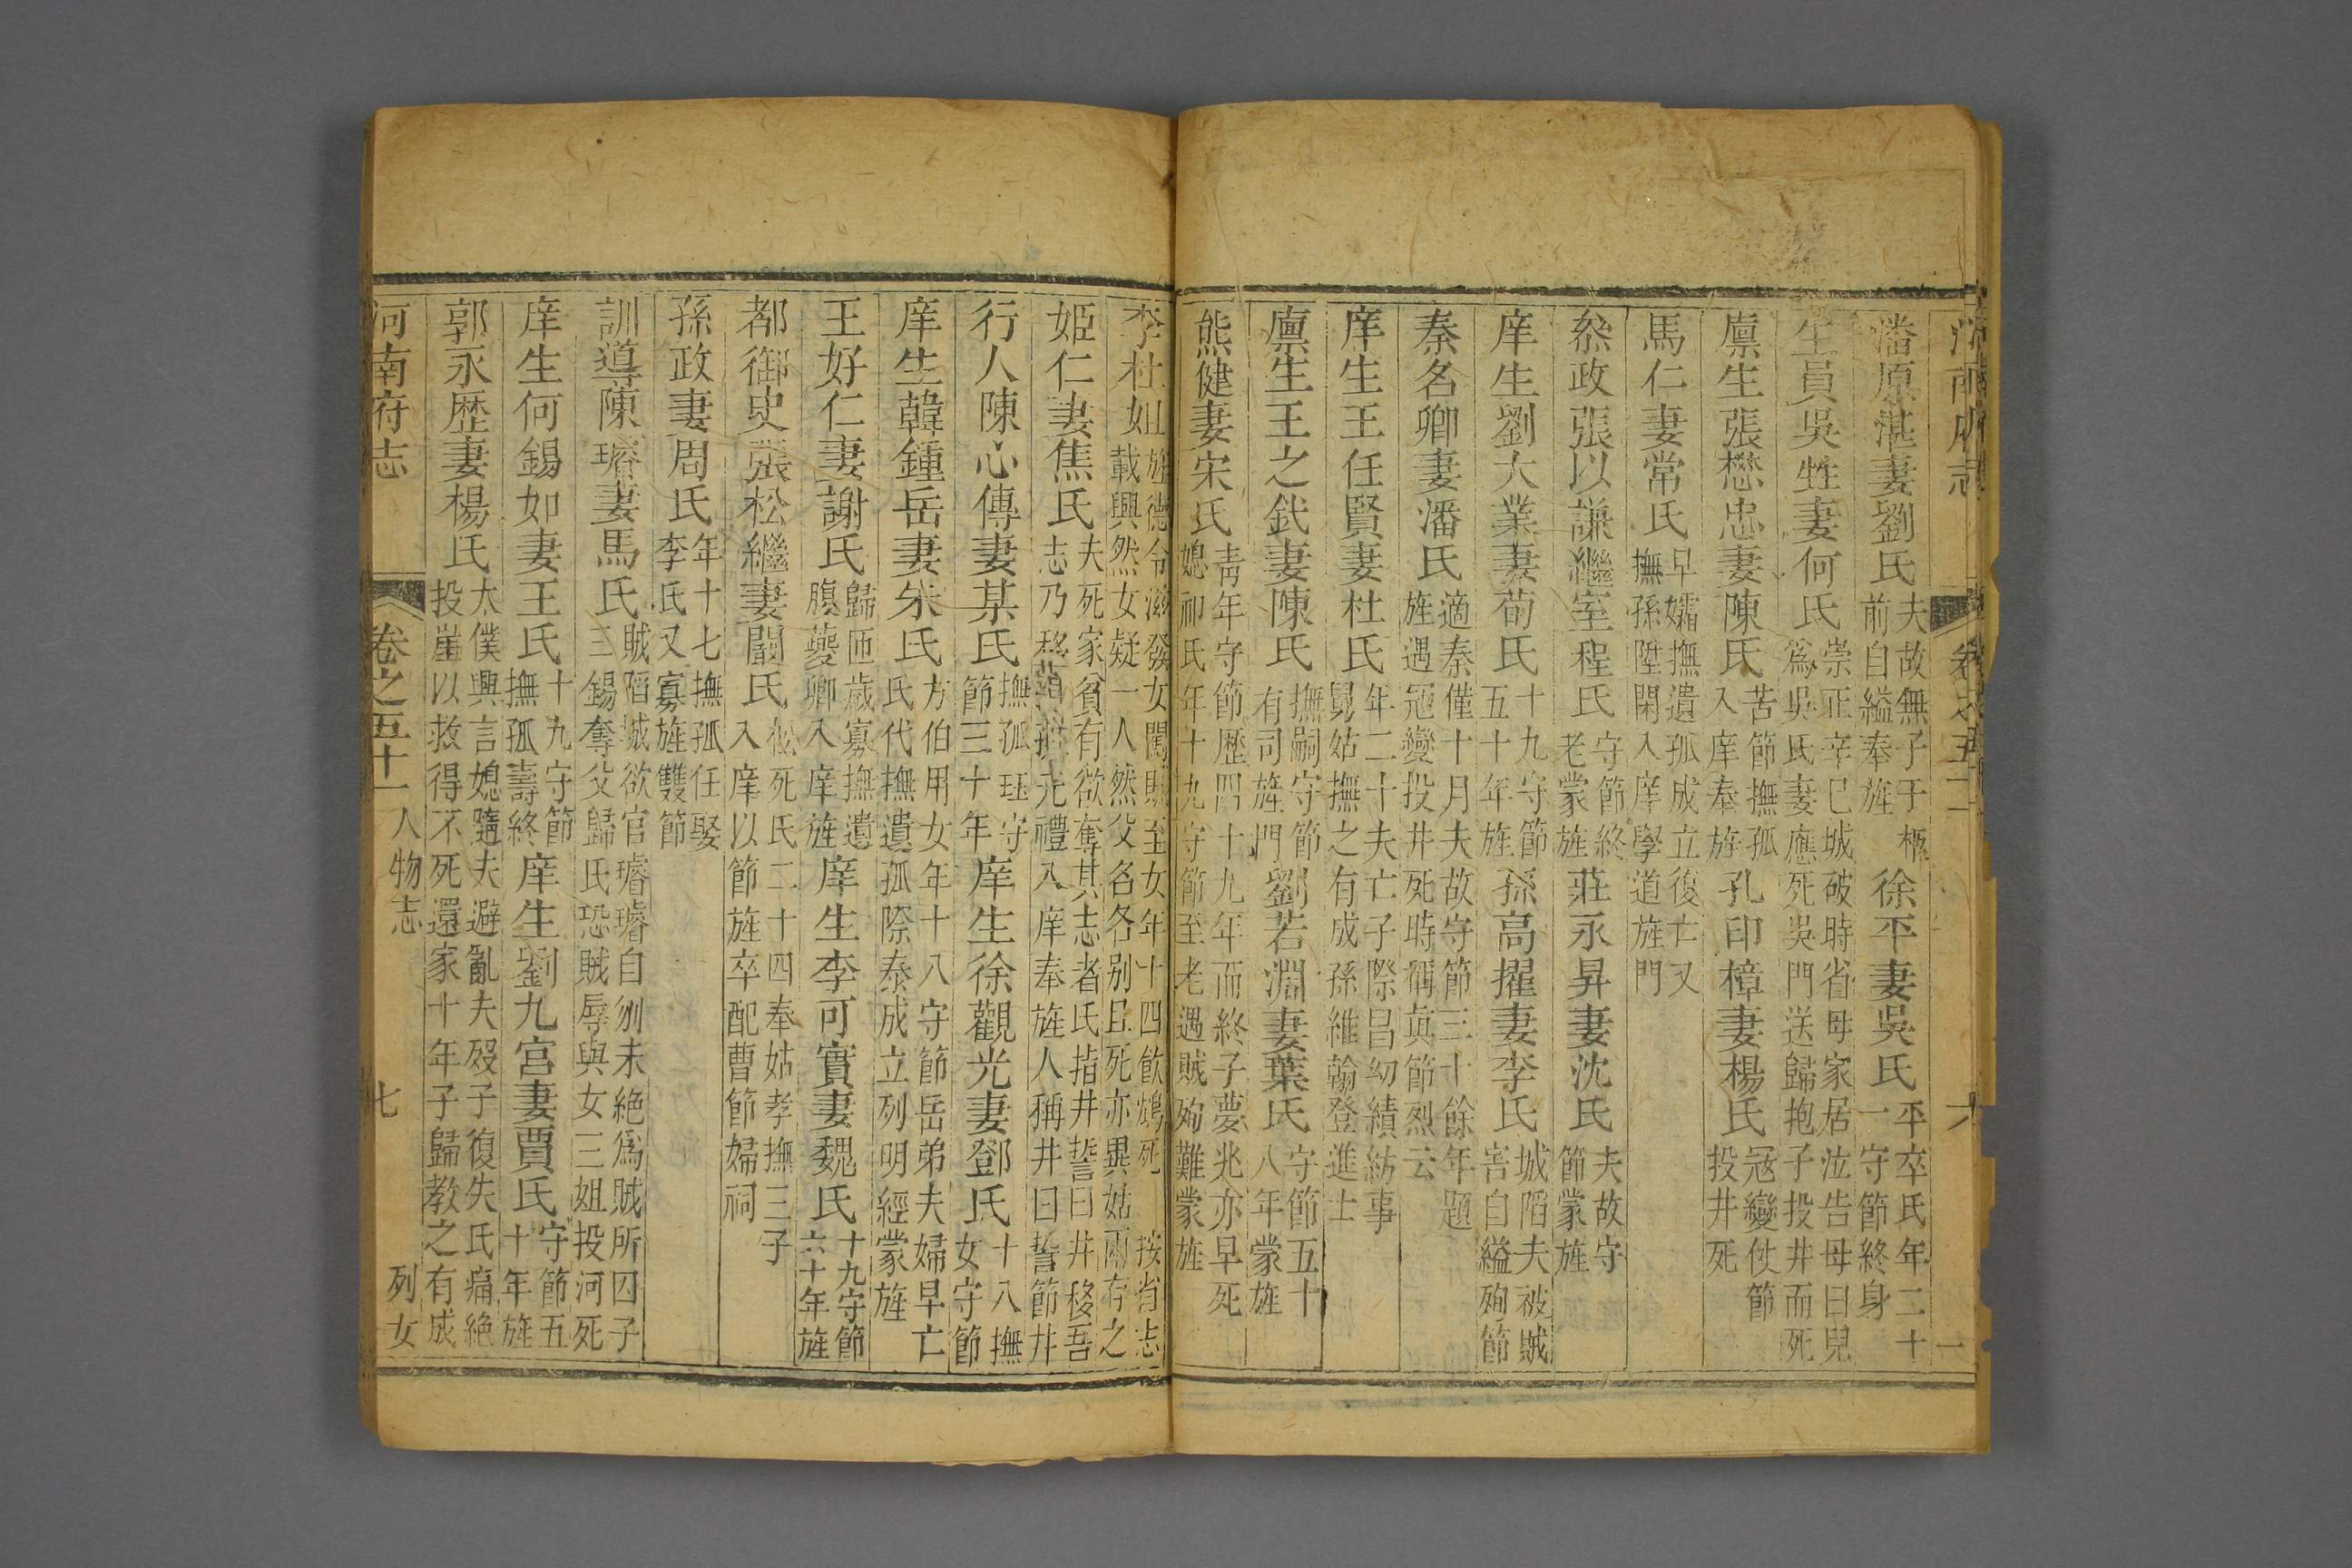 河南府志
卷之五十一
潘原湛妻劉氏 夫故無子于柩前自縊奉旌 徐平妻吳氏 平卒氏年二十一守節終身
生員吳甡妻何氏 崇正辛巳城破時省母家居泣告母曰兒爲吳氏妻應死吳門送歸抱子投井而死
廩生張懋忠妻陳氏 苦節撫孤入庠奉旌 孔印樟妻楊氏 冦變仗節投井死
馬仁妻常氏 早孀撫遺孤成立復亡又撫孫陞閑入庠學道旌門
叅政張以謙繼室程氏 守節終老蒙旌 莊永昇妻沈氏 夫故守節蒙旌
庠生劉大業妻荀氏 十九守節五十年旌 孫高擢妻李氏 城陷夫被賊害自縊殉節
秦名卿妻潘氏 適秦僅十月夫故守節三十餘年題旌遇冦變投井死時稱眞節烈云
庠生王任賢妻杜氏 年二十夫亡子際昌幼績紡事舅姑撫之有成孫維翰登進士
廩生王之鈂妻陳氏 撫嗣守節有司旌門 劉若淵妻葉氏 守節五十八年蒙旌
熊健妻宋氏 靑年守節歷四十九年而終子夢兆亦早死媳祁氏年十九守節至老遇賊殉難蒙旌
李杜姐 旌德令滋發女闖賊至女年十四飮鴆死 按省志載興然女疑一人然父名各别且死亦異姑兩存之
姬仁妻焦氏 夫死家貧有欲奪其志者氏指井誓曰井移吾志乃移 元禮入庠奉旌人稱井曰誓節井
行人陳心傳妻某氏 撫孤珏守節三十年 庠生徐觀光妻鄧氏 十八撫女守節
庠生韓鍾岳妻朱氏 方伯用女年十八守節岳弟夫婦早亡氏代撫遺孤際泰成立列明經蒙旌
王好仁妻謝氏 歸匝歲寡撫遺腹夔卿入庠旌 庠生李可實妻魏氏 十九守節六十年旌
都御史張松繼妻闞氏 松死氏二十四奉姑孝撫三子入庠以節旌卒配曹節婦祠
孫政妻周氏 年十七撫孤任娶李氏又寡旌雙節
訓導陳璿妻馬氏 賊陷城欲官璿璿自刎未絶爲賊所囚子三錫奪父歸氏恐賊辱與女三姐投河死
庠生何錫如妻王氏 十九守節撫孤壽終 庠生劉九宮妻賈氏 守節五十年旌
郭永歴妻楊氏 太僕興言媳隨夫避亂夫殁子復失氏痛絶投崖以救得不死還家十年子歸教之有成
河南府志
卷之五十一人物志
列女
七